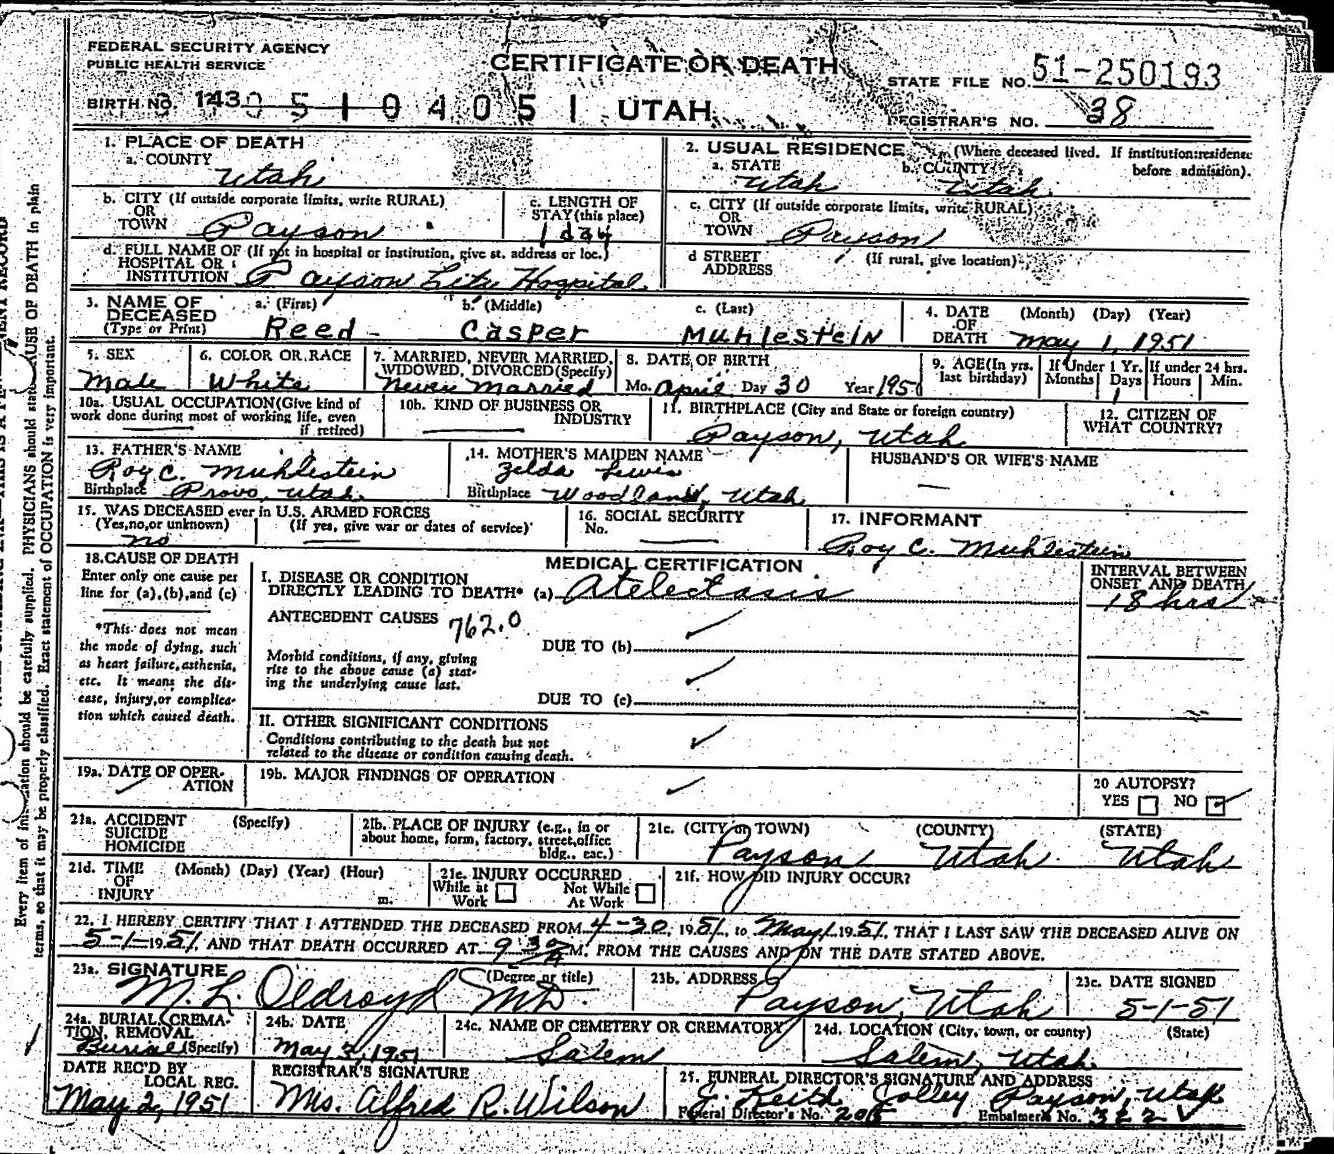 FEDERAL SECURITY AGENCY
PUBLIC HEALTH SERVICE
CERTIFICATE OF DEATH
STATE FILE NO. 51-250193
BIRTH NO. 143 051 04051 UTAH
REGISTRAR'S NO. 38
1. PLACE OF DEATH
a. COUNTY
Utah
2. USUAL RESIDENCE (Where deceased lived. If institution: residence before admission).
a. STATE Utah b. COUNTY Utah
b. CITY (If outside corporate limits, write RURAL)
OR
TOWN Payson
c. LENGTH OF
STAY (this place)
1 day
c. CITY (If outside corporate limits, write RURAL)
OR
TOWN Payson
d. FULL NAME OF (If not in hospital or institution, give st. address or loc.)
HOSPITAL OR
INSTITUTION Payson City Hospital
d STREET (If rural, give location)
ADDRESS
3. NAME OF
DECEASED
(Type or Print)
a. (First) b. (Middle) c. (Last)
Reed Casper Muhlestein
4. DATE (Month) (Day) (Year)
OF
DEATH May 1, 1951
5. SEX
Male
6. COLOR OR RACE
White
7. MARRIED, NEVER MARRIED,
WIDOWED, DIVORCED (Specify)
Never Married
8. DATE OF BIRTH
Mo. April Day 30 Year 1951
9. AGE (In yrs.
last birthday)
If Under 1 Yr.
Months Days
1
If under 24 hrs.
Hours Min.
10a. USUAL OCCUPATION (Give kind of
work done during most of working life, even
if retired)
10b. KIND OF BUSINESS OR
INDUSTRY
11. BIRTHPLACE (City and State or foreign country)
Payson, Utah
12. CITIZEN OF
WHAT COUNTRY?
13. FATHER'S NAME
Roy C. Muhlestein
Birthplace Provo, Utah
14. MOTHER'S MAIDEN NAME
Zelda Lewis
Birthplace Woodland, Utah
HUSBAND'S OR WIFE'S NAME
15. WAS DECEASED ever in U.S. ARMED FORCES
(Yes, no, or unknown) (If yes, give war or dates of service)
no
16. SOCIAL SECURITY
No.
17. INFORMANT
Roy C. Muhlestein
18. CAUSE OF DEATH
Enter only one cause per
line for (a), (b), and (c)
*This does not mean
the mode of dying, such
as heart failure, asthenia,
etc. It means the dis-
ease, injury, or complica-
tion which caused death.
MEDICAL CERTIFICATION
I. DISEASE OR CONDITION
DIRECTLY LEADING TO DEATH* (a) Atelectasis
INTERVAL BETWEEN
ONSET AND DEATH
18 hrs
ANTECEDENT CAUSES 762.0
DUE TO (b)
Morbid conditions, if any, giving
rise to the above cause (a) stat-
ing the underlying cause last.
DUE TO (c)
II. OTHER SIGNIFICANT CONDITIONS
Conditions contributing to the death but not
related to the disease or condition causing death.
19a. DATE OF OPER-
ATION
19b. MAJOR FINDINGS OF OPERATION
20 AUTOPSY?
YES NO
21a. ACCIDENT (Specify)
SUICIDE
HOMICIDE
21b. PLACE OF INJURY (e.g., in or
about home, form, factory, street, office
bldg., eac.)
21c. (CITY or TOWN) (COUNTY) (STATE)
Payson Utah Utah
21d. TIME (Month) (Day) (Year) (Hour)
OF
INJURY m.
21e. INJURY OCCURRED
While at Work Not While At Work
21f. HOW DID INJURY OCCUR?
22. I HEREBY CERTIFY THAT I ATTENDED THE DECEASED FROM 4-30, 1951, to May 1 1951, THAT I LAST SAW THE DECEASED ALIVE ON
5-1-1951, AND THAT DEATH OCCURRED AT 9 30 a M. FROM THE CAUSES AND ON THE DATE STATED ABOVE.
23a. SIGNATURE (Degree or title)
M. L. Oldroyd M.D.
23b. ADDRESS
Payson, Utah
23c. DATE SIGNED
5-1-51
24a. BURIAL, CREMA-
TION, REMOVAL
Burial (Specify)
24b. DATE
May 3, 1951
24c. NAME OF CEMETERY OR CREMATORY
Salem
24d. LOCATION (City, town, or county) (State)
Salem, Utah
DATE REC'D BY
LOCAL REG.
May 2, 1951
REGISTRAR'S SIGNATURE
Mrs. Alfred R. Wilson
25. FUNERAL DIRECTOR'S SIGNATURE AND ADDRESS
J. Keith Jolley Payson, Utah
Funeral Director's No. Embalmer's No. 322
Every item of information should be carefully supplied. PHYSICIANS should state CAUSE OF DEATH in plain
terms, so that it may be properly classified. Exact statement of OCCUPATION is very important.